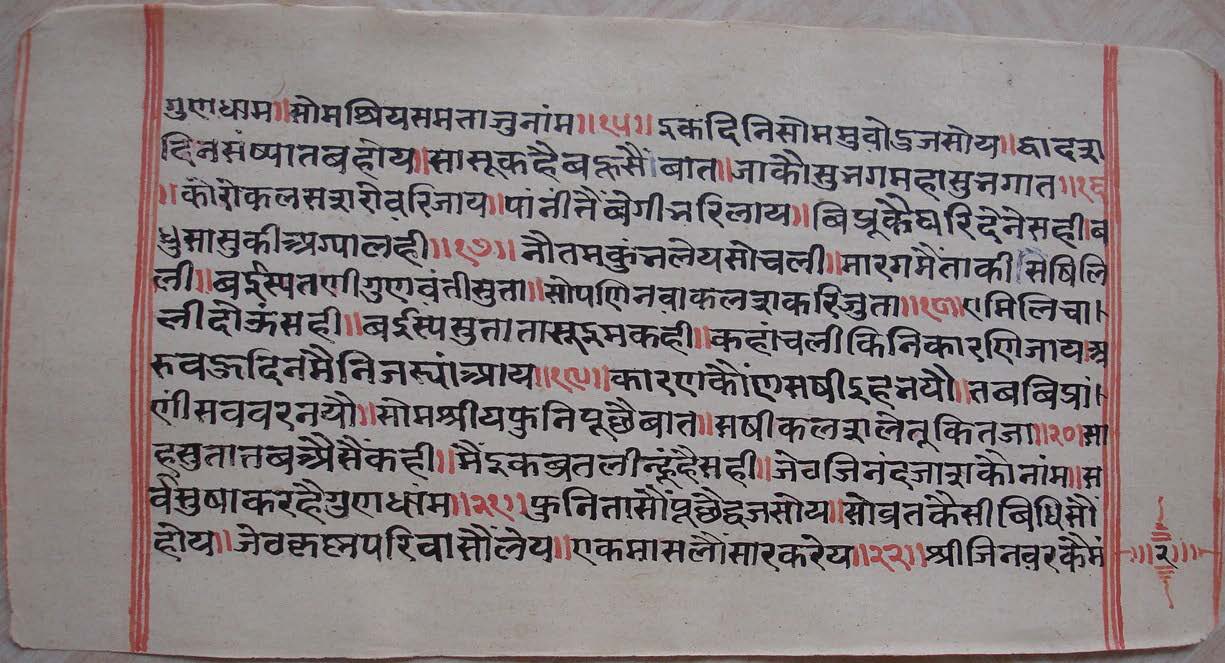 गुणधाम॥सोमश्रियसमताजुनांम॥१५॥इकदिनिसोममुवोऽजसोय॥द्वादश
दिनसंष्यातबहोय॥सासूकहैबहूसौंबात॥जाकौसुभगमहासुभगात॥१६
॥कोरोकलसशरोवरिजाय॥पांनीतैंबेगीभरिलाय॥बिप्रूकैघरिदेनेसही।ब
धुसासुकीआग्यालही॥१७॥नौतमकुंभलेयसोचली॥मारगमैंताकीसषिलि
ली॥बईस्पतणीगुणवंतीसुता॥सोपणिनवाकलशकरिजुता॥१८॥एमिलिचा।
लीदोऊंसही॥बईस्पसुतातासूइमकही॥कहांचलीकिनिकारणिजाय।अ
रुवऊदिनमैनिजस्यांआय॥१९॥कारणकौंणसषीइहनयौ॥तबबिप्रां।
णीसववरनयौ॥सोमश्रीयफुनिपूछैबात॥सषीकलशलेतूकितजा॥२०॥सा
हसुतातबअैसैंकही॥मैंइकब्रतलीन्हूंहैसही॥जेठजिनंदजाशकौनांम॥स
र्वसुषाकरहैगुणधांम॥२१॥फुनितासौंपूछैद्वजसोय॥सोव्रतकैसीबिधिसौं
होय॥जेठकृष्नपरिवासौंलेय॥एकमासलौंसारकरेय॥२२॥श्रीजिनवरकैमं
॥२॥